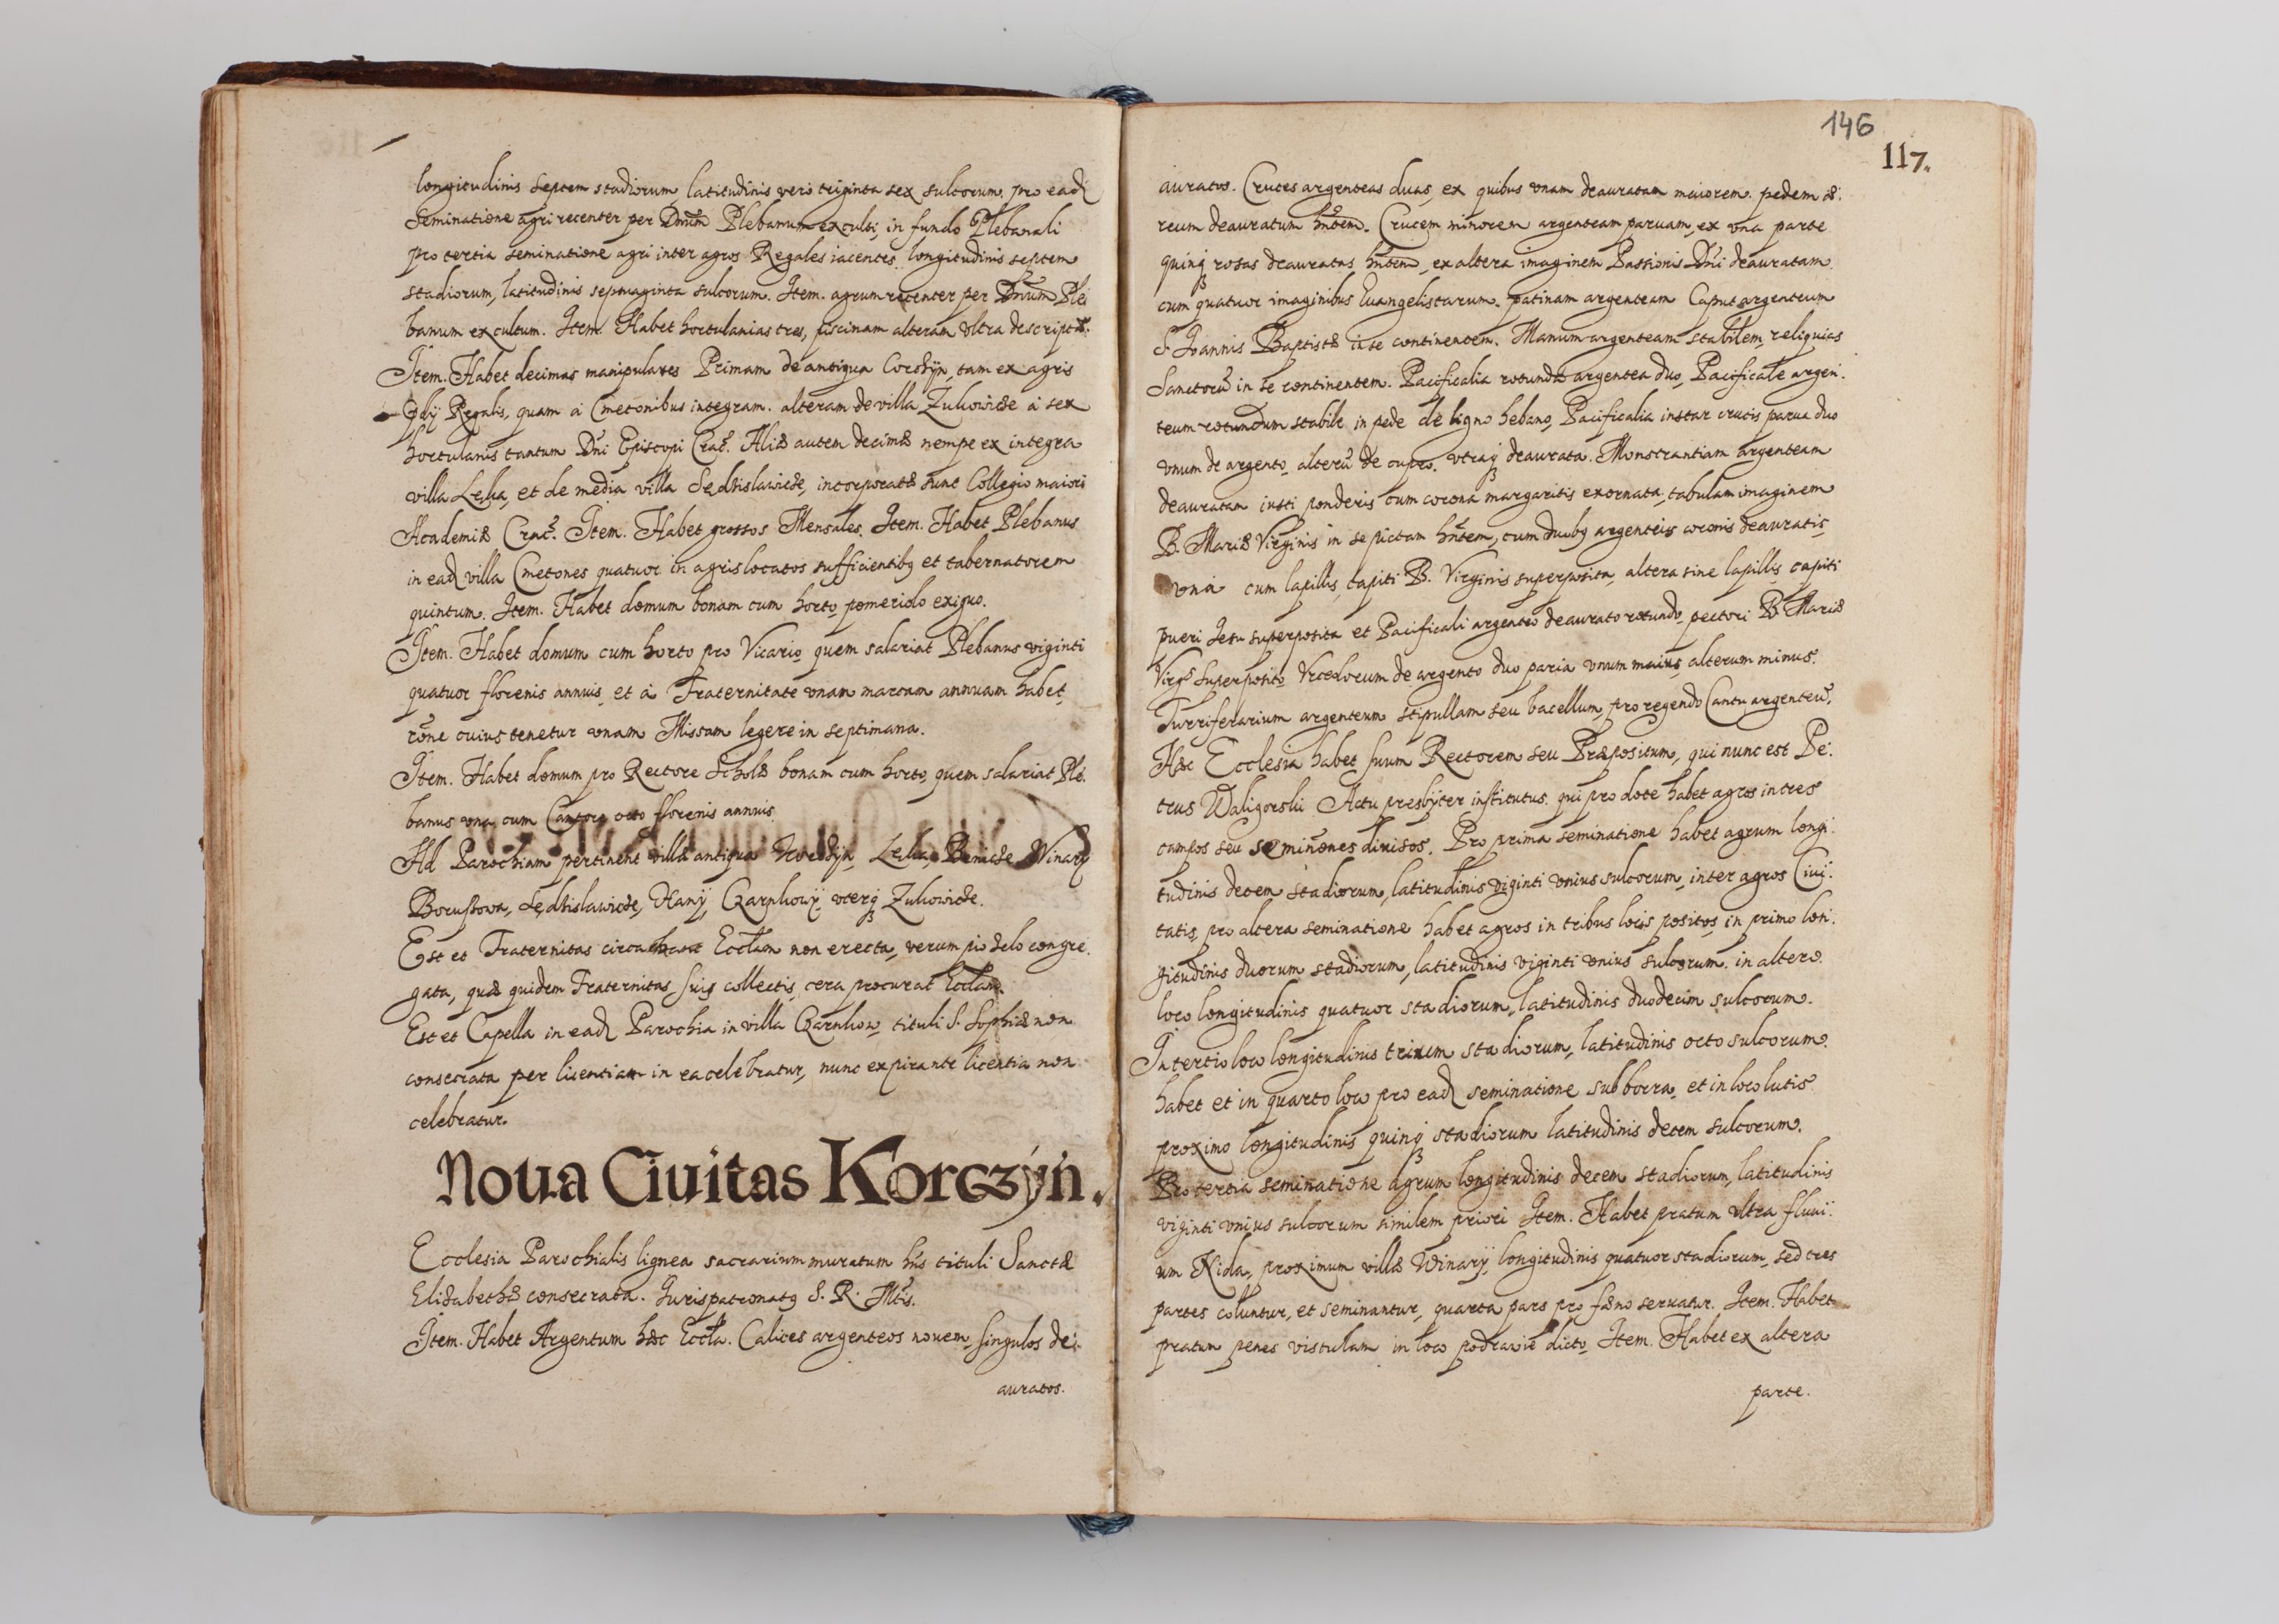 longitudinis septem stadiorum, latitudinis vero triginta sex sulcorum. pro ead
Seminatione agri recenter per Dnum Plebanum exculti, in fundo Plebanali
pro tertia seminatione agri inter agros Regales iacentes longitudinis septem
stadiorum, latitudinis septuaginta sulcorum. Item. agrum recenter per Dnum Ple
banum excultum. Item. Habet hortulanias tres, piscinam alteram vltra descriptã.
Item. Habet decimas manipulares Primam de antiqua Corczÿn, tam ex agris
Pdÿ Regalis, quam à Cmetonibus integram. alteram de villa Zukowicze à sex
hortulanis tantum Dni Episcopi Crac. Aliæ autem decimæ nempe ex integra
villa Lęka, et de media villa Sędzislawicze, incorporatæ sunt Collegio maiori
Academiæ Crac. Item. Habet grossos Mensales. Item. Habet Plebanus
in ead villa Cmetones quatuor in agris locatos sufficientibq et tabernatorem
quintum. Item. Habet domum bonam cum horto, pomeriolo exiguo.
Item. Habet domum cum horto pro Vicario, quem salariat Plebanus viginti
quatuor florenis annuis, et à Fraternitate vnam marcam annuam habet,
rõne cuius tenetur vnam Missam legere in septimana.
Item. Habet domum pro Rectore Scholæ bonam cum horto, quem salariat Ple.
banus vna cum Cantore octo florenis annuis.
Ad Parochiam pertinent villæ antiqua Korczÿn, Lęka, Benicze Winarÿ
Boruszowa, Sędzislawicze, Hanÿ, Czarnkowÿ, vterq Zukowicze.
Est et Fraternitas circa hanc Ecclam non erecta, verum pio zelo congre.
gata, quæ quidem Fraternitas suis collectis, cera procurat Ecclam.
Est et Capella in ead Parochia in villa Czarnkow, tituli S. Sophiæ non
consecrata per licentiam in ea celebratur, nunc expirante licentia non
celebratur.
Noua Ciuitas Korczÿn.
Ecclesia Parochialis lignea sacrarium muratum hñs tituli Sanctæ
Elizabethæ consecrata. Jurispatronatq S. R. Mtis.
Item. Habet Argentum hæc Eccla. Calices argenteos nouem, singulos de.
auratos.
146
117.
auratos. Cruces argenteas duas, ex quibus vnam deauratam maiorem. pedem æ.
reum deauratum hñtem. Crucem minorem argenteam paruam, ex vna parte
quinq rosas deauratas hñtem, ex altera imaginem Passionis Dni deauratam.
cum quatuor imaginibus Euangelistarum. patinam argenteam Caput argenteum
S. Joannis Baptistæ in se continentem. Manum argenteam stabilem, reliquias
Sanctorũ in se continentem. Pacificalia rotunda argentea duo, Pacificale argen.
teum rotundum stabile in pede de ligno hebano, Pacificalia instar crucis parua duo
vnum de argento, alterũ de cupro. vtraq deaurata. Monstrantiam argenteam
deauratam iusti ponderis cum corona margaritis exornata, tabulam imaginem
B. Mariæ Virginis in se pictam hñtem, cum duabq argenteis coronis deauratis,
vna cum lapillis, capiti B. Virginis superposita, altera sine lapillis, capiti
pueri Jesu superposita et Pacificali argenteo deaurato rotundo, pectori B. Mariæ
Virgs superposito. Vrceolorum de argento duo paria vnum maius, alterum minus.
Turriferarium argenteum stipullam seu bacellum, pro regendo Cantu argenteũ.
Hæc Ecclesia habet suum Rectorem seu Præpositum, qui nunc est Pe.
trus Waligorski Actu presbÿter institutus. qui pro dote habet agros in tres
campos seu seminõnes diuisos. Pro prima seminatione habet agrum longi.
tudinis decem stadiorum, latitudinis viginti vnius sulcorum, inter agros Ciui.
tatis, pro altera seminatione habet agros in tribus locis positos, in primo lon.
gitudinis duorum stadiorum, latitudinis viginti vnius sulcorum. in altero.
loco longitudinis quatuor stadiorum, latitudinis duodecim sulcorum.
In tertio loco longitudinis trium stadiorum, latitudinis octo sulcorum.
habet et in quarto loco pro ead seminatione sub borra, et in loco lutis
proximo longitudinis quinq stadiorum latitudinis decem sulcorum.
Pro tertia seminatione agrum longitudinis decem stadiorum, latitudinis
viginti vnius sulcorum similem priori Item. Habet pratum vltra fluui.
um Nida, proximum villæ Winarÿ, longitudinis quatuor stadiorum, sed tres
partes coluntur, et seminantur, quarta pars pro fæno seruatur. Item. Habet
pratum penes vistulam in loco podrawie dicto, Item. Habet ex altera
parte.